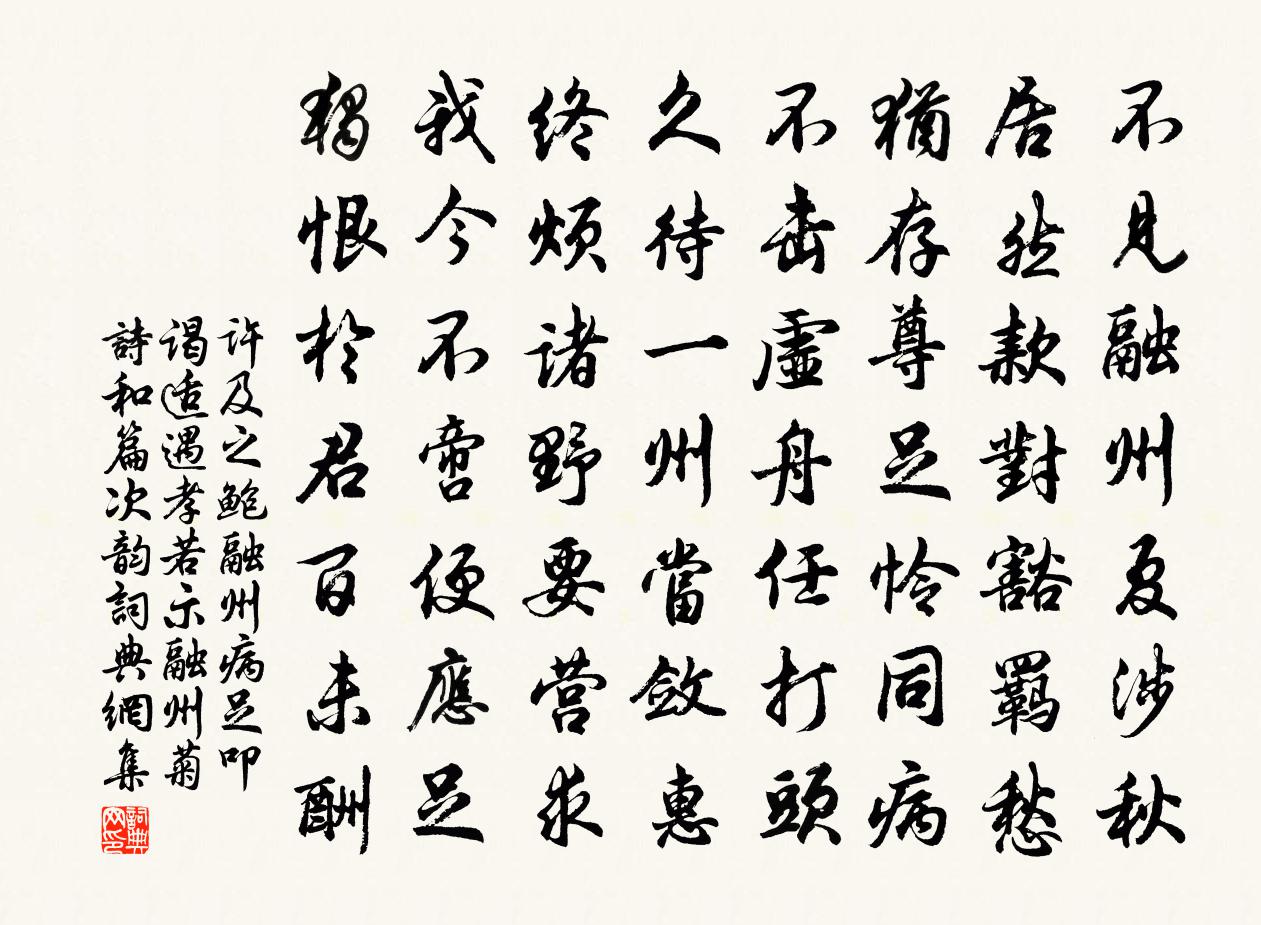 不見融州夏涉秋
居然款對豁羈愁
猶存尊足憐同病
不击虛舟任打頭
久待一州當斂惠
終煩諸野要营求
我今不啻便應足
獨恨於君百未酬
許及之鮑融州病足叩
谒适遇孝若示融州菊
詩和篇次韵詞典網集
詞典网印